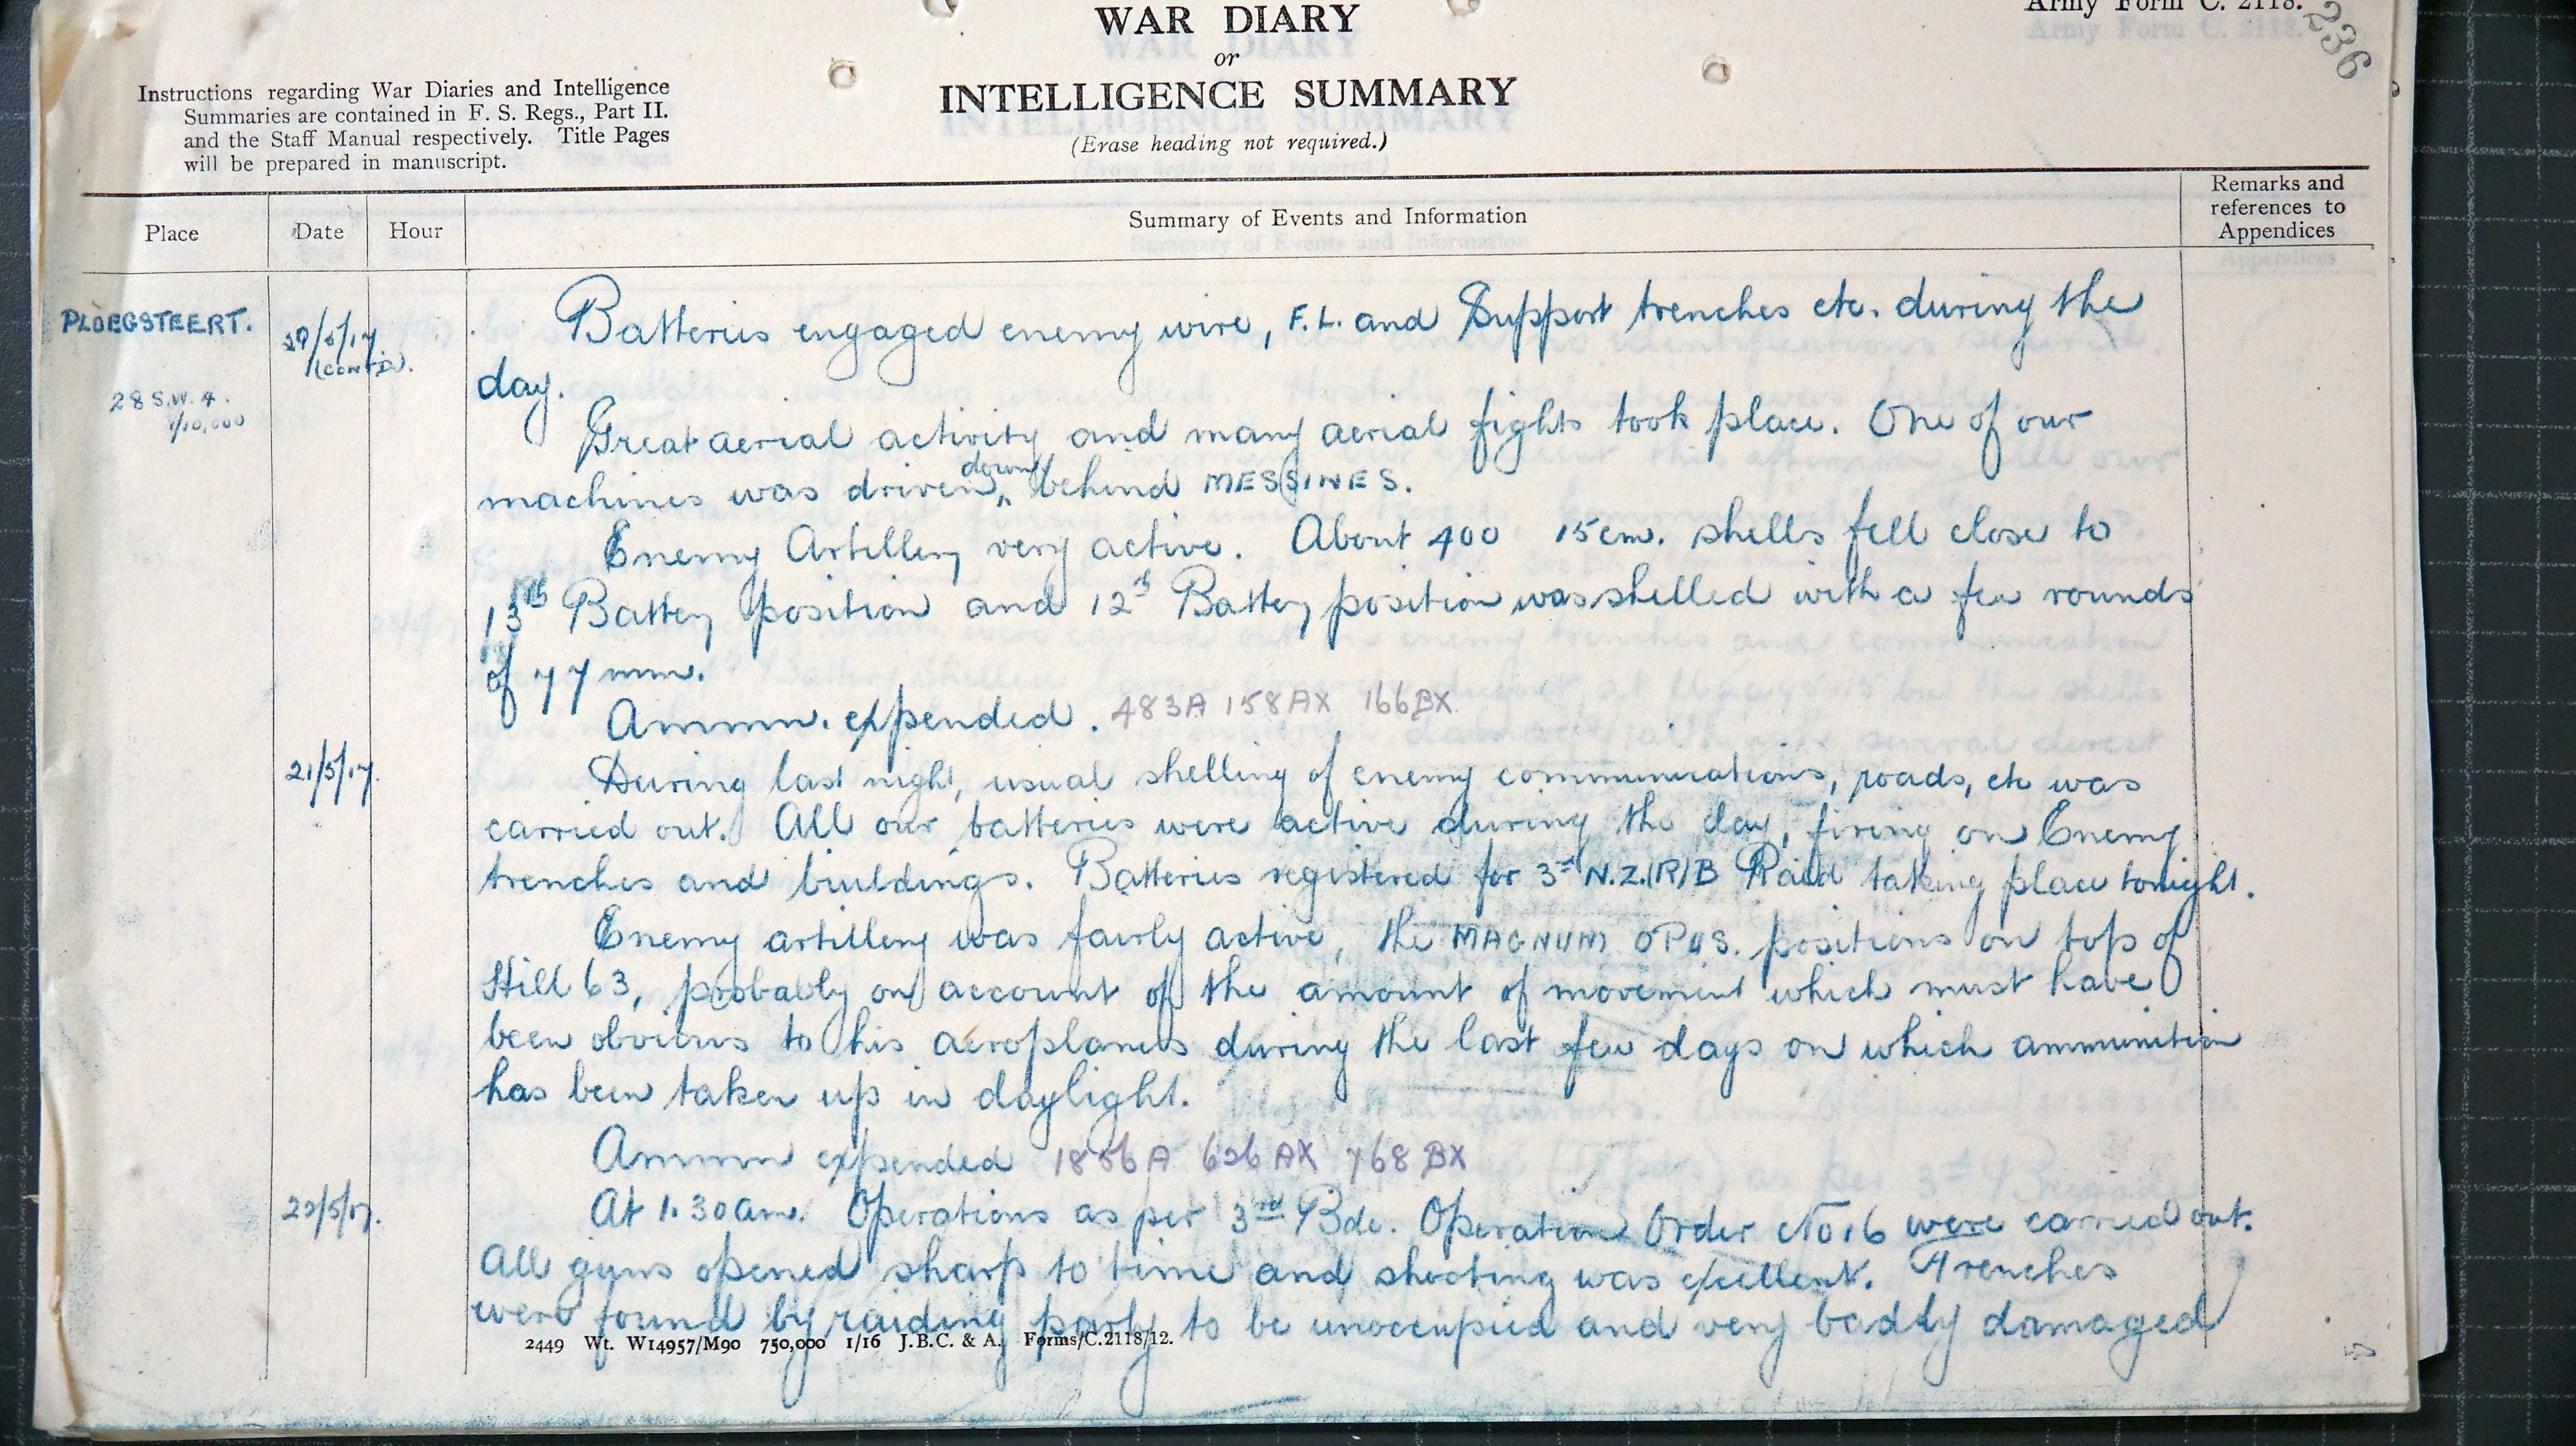 Army Form C. 2118.
236
WAR DIARY
or
INTELLIGENCE SUMMARY
(Erase heading not required.)
Instructions regarding War Diaries and Intelligence
Summaries are contained in F. S. Regs., Part II.
and the Staff Manual respectively. Title Pages
will be prepared in manuscript.
Place Date Hour Summary of Events and Information Remarks and
references to
Appendices
PLOEGSTEERT.
(CONTD).
28 S.W. 4.
1/10,000
Batteries engaged enemy wire, F.L. and Support trenches etc. during the
day.
Great aerial activity and many aerial fights took place. One of our
machines was driven down behind MESSINES.
Enemy Artillery very active. About 400 15cm. shells fell close to
13th Battery position and 12th Battery position was shelled with a few rounds
of 77mm.
Ammn. expended. 483A 158AX 166BX
21/5/17.
During last night, usual shelling of enemy communications, roads, etc was
carried out. All our batteries were active during the day, firing on Enemy
trenches and buildings. Batteries registered for 3rd N.Z.(R)B Raid taking place tonight.
Enemy artillery was fairly active, the MAGNUM OPUS. positions on top of
Hill 63, probably on account of the amount of movement which must have
been obvious to his aeroplanes during the last few days on which ammunition
has been taken up in daylight.
Ammn expended 1856A 626AX 768BX
At 1.30am. Operations as per 3rd Bde. Operation Order No 16 were carried out.
All guns opened sharp to time and shooting was excellent. Trenches
were found by raiding party to be unoccupied and very badly damaged
2449 Wt. W14957/M90 750,000 1/16 J.B.C. & A. Forms/C.2118/12.